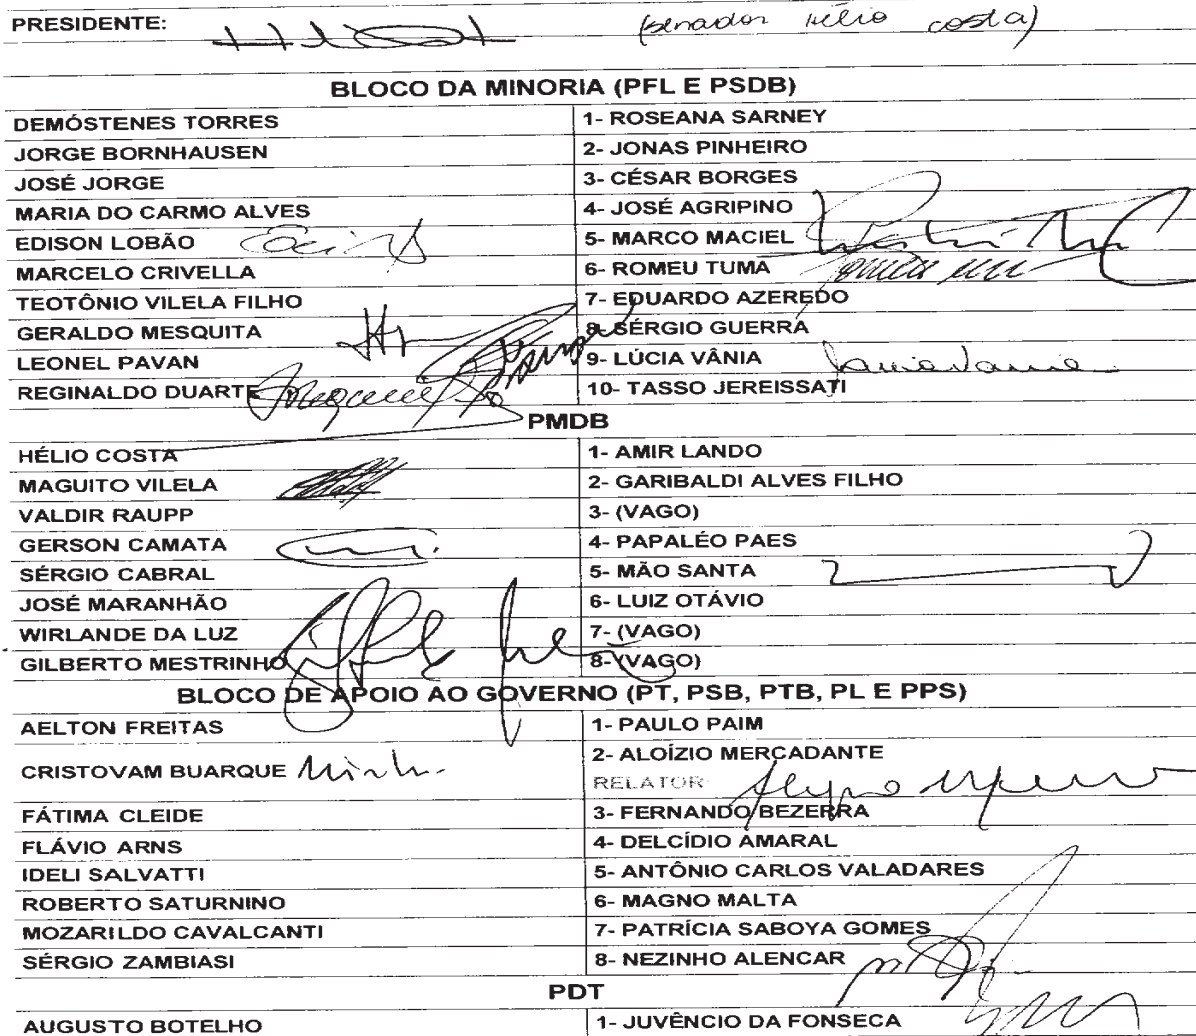 PRESIDENTE: (senador Hélio costa)
BLOCO DA MINORIA (PFL E PSDB)
DEMÓSTENES TORRES 1- ROSEANA SARNEY
JORGE BORNHAUSEN 2- JONAS PINHEIRO
JOSÉ JORGE 3- CÉSAR BORGES
MARIA DO CARMO ALVES 4- JOSÉ AGRIPINO
EDISON LOBÃO 5- MARCO MACIEL
MARCELO CRIVELLA 6- ROMEU TUMA
TEOTÔNIO VILELA FILHO 7- EDUARDO AZEREDO
GERALDO MESQUITA 8- SÉRGIO GUERRA
LEONEL PAVAN 9- LÚCIA VÂNIA
REGINALDO DUARTE 10- TASSO JEREISSATI
PMDB
HÉLIO COSTA 1- AMIR LANDO
MAGUITO VILELA 2- GARIBALDI ALVES FILHO
VALDIR RAUPP 3- (VAGO)
GERSON CAMATA 4- PAPALÉO PAES
SÉRGIO CABRAL 5- MÃO SANTA
JOSÉ MARANHÃO 6- LUIZ OTÁVIO
WIRLANDE DA LUZ 7- (VAGO)
GILBERTO MESTRINHO 8- (VAGO)
BLOCO DE APOIO AO GOVERNO (PT, PSB, PTB, PL E PPS)
AELTON FREITAS 1- PAULO PAIM
CRISTOVAM BUARQUE 2- ALOÍZIO MERCADANTE
RELATOR
FÁTIMA CLEIDE 3- FERNANDO BEZERRA
FLÁVIO ARNS 4- DELCÍDIO AMARAL
IDELI SALVATTI 5- ANTÔNIO CARLOS VALADARES
ROBERTO SATURNINO 6- MAGNO MALTA
MOZARILDO CAVALCANTI 7- PATRÍCIA SABOYA GOMES
SÉRGIO ZAMBIASI 8- NEZINHO ALENCAR
PDT
AUGUSTO BOTELHO 1- JUVÊNCIO DA FONSECA